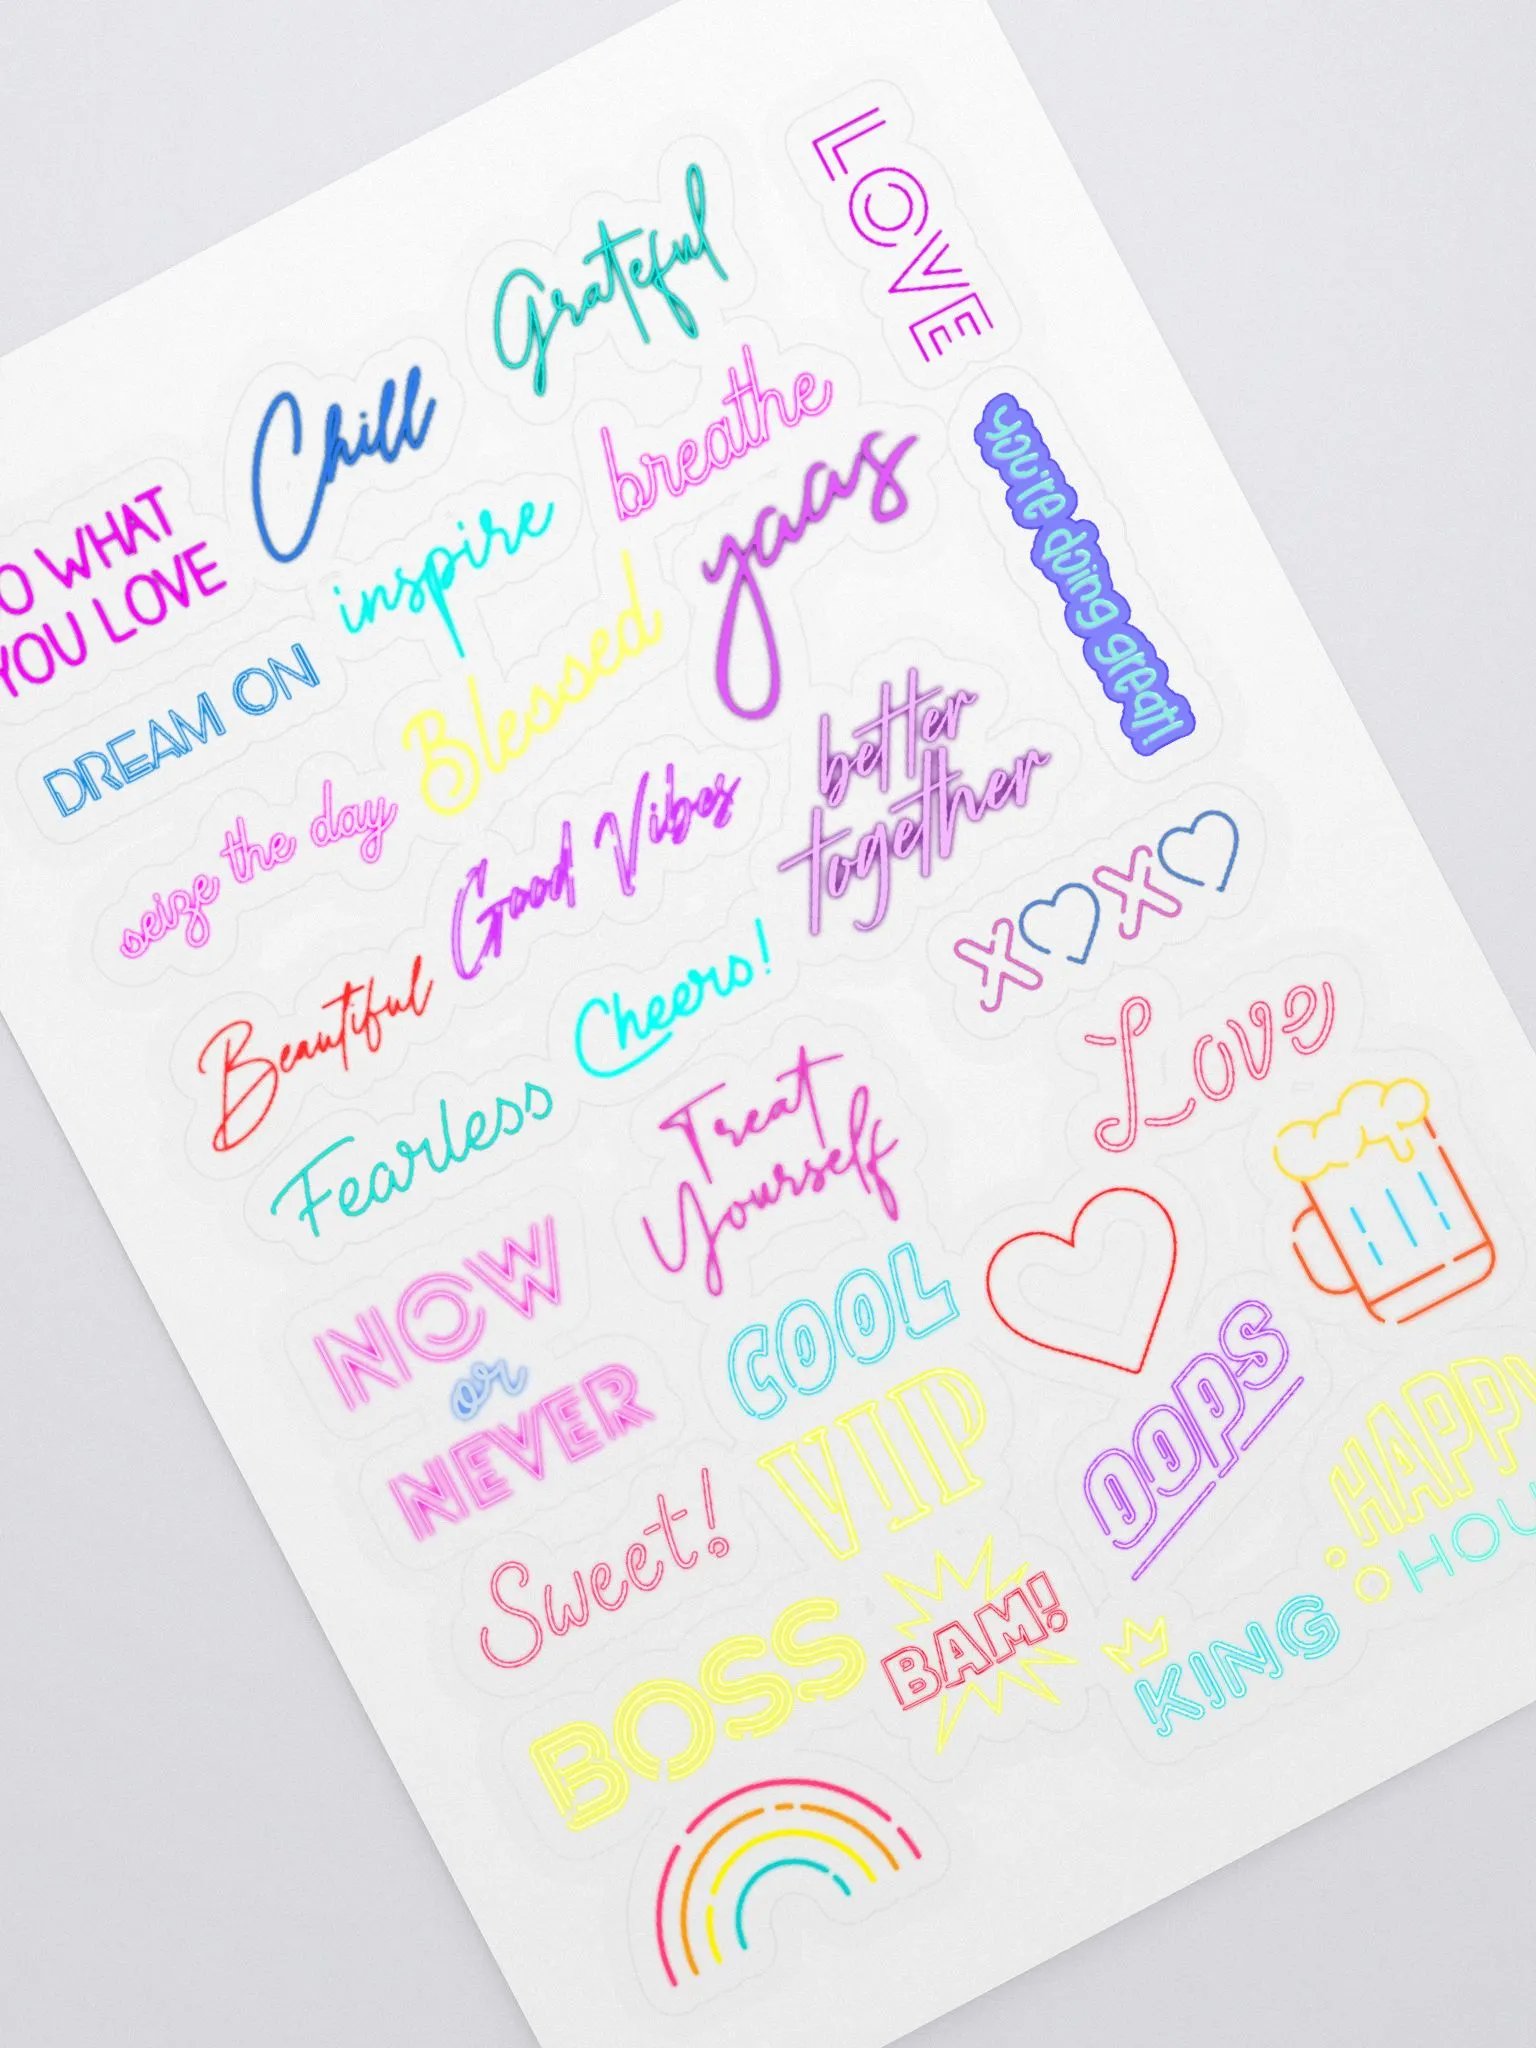 LOVE
Grateful
Chill
breathe
you're doing great!
O WHAT
YOU LOVE
inspire
yaas
DREAM ON
Blessed
better
together
seize the day
Good Vibes
XOXO
Beautiful
Cheers!
Love
Fearless
Treat
Yourself
NOW
or
NEVER
COOL
OOPS
VIP
HAPPY
HOU
Sweet!
BAM!
KING
BOSS